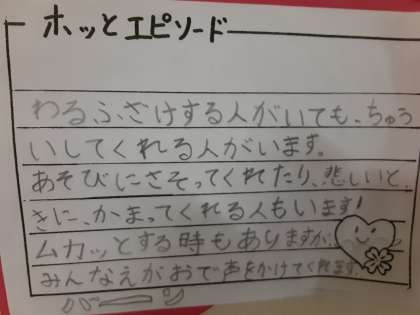 ホッとエピソード
わるふざけする人がいても、ちゅう
いしてくれる人がいます。
あそびにさそってくれたり、悲しいと
きに、かまってくれる人もいます!
ムカッとする時もありますが、
みんなえがおで声をかけてくれます。